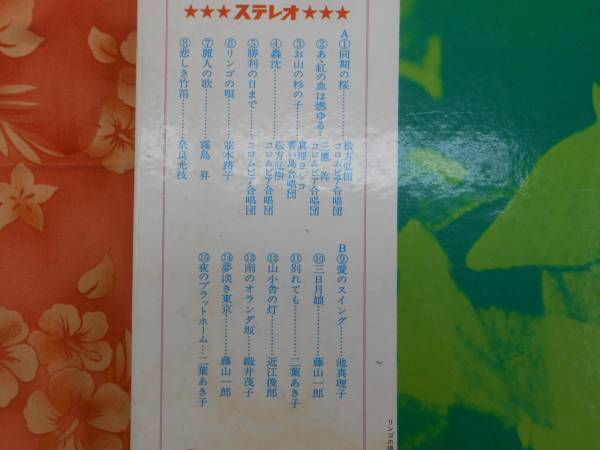 ★★★ステレオ★★★
A
①同期の桜………松方弘樹
コロムビア合唱団
②あゝ紅の血は燃ゆる…三鷹 淳
コロムビア合唱団
③お山の杉の子…真理ヨシコ
青い鳥合唱団
④轟沈………松方弘樹
コロムビア合唱団
⑤勝利の日まで…コロムビア合唱団
⑥リンゴの唄………並木路子
⑦麗人の歌………霧島 昇
⑧悲しき竹笛………奈良光枝
B
⑨愛のスイング………池真理子
⑩三日月娘………藤山一郎
⑪別れても………二葉あき子
⑫山小舎の灯………近江俊郎
⑬雨のオランダ坂………織井茂子
⑭夢淡き東京………藤山一郎
⑮夜のプラットホーム…二葉あき子
リンゴの唄